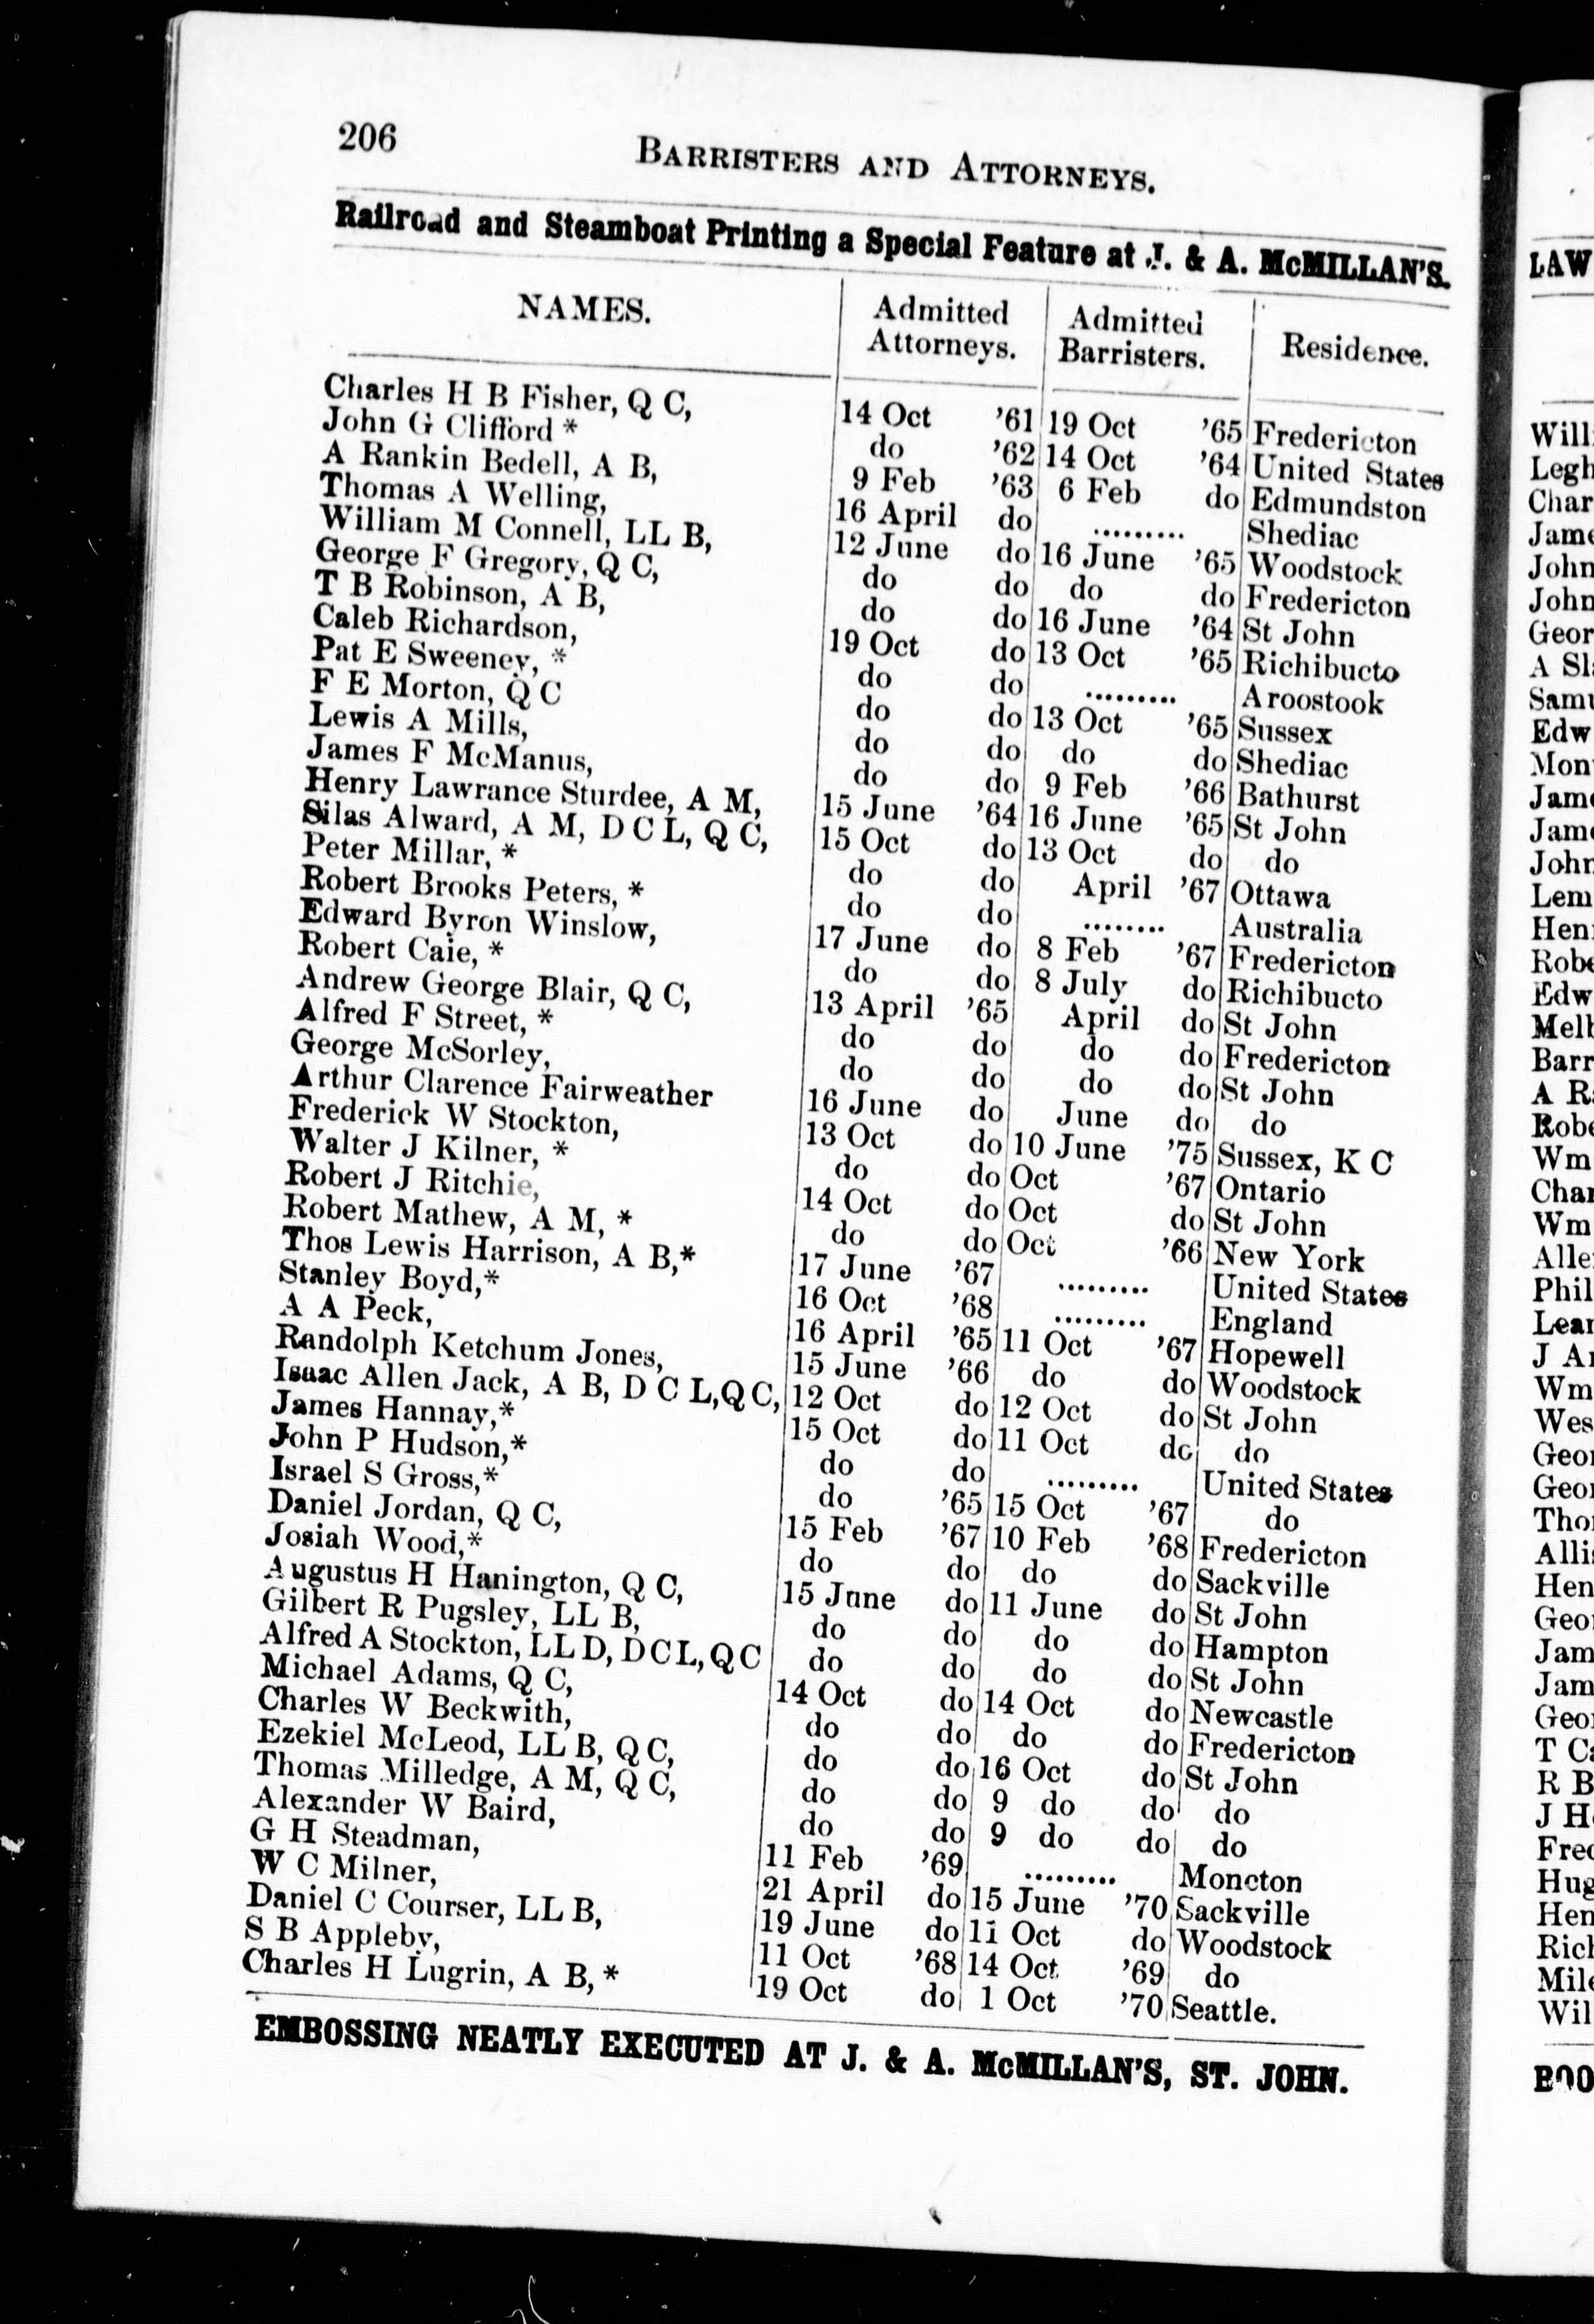 206
BARRISTERS AND ATTORNEYS.
Railroad and Steamboat Printing a Special Feature at J. & A. McMILLAN'S.
NAMES. Admitted Attorneys. Admitted Barristers. Residence.
Charles H B Fisher, Q C, 14 Oct '61 19 Oct '65 Fredericton
John G Clifford * do '62 14 Oct '64 United States
A Rankin Bedell, A B, 9 Feb '63 6 Feb do Edmundston
Thomas A Welling, 16 April do ......... Shediac
William M Connell, LL B, 12 June do 16 June '65 Woodstock
George F Gregory, Q C, do do do do Fredericton
T B Robinson, A B, do do 16 June '64 St John
Caleb Richardson, 19 Oct do 13 Oct '65 Richibucto
Pat E Sweeney, * do do ......... Aroostook
F E Morton, Q C do do 13 Oct '65 Sussex
Lewis A Mills, do do do do Shediac
James F McManus, do do 9 Feb '66 Bathurst
Henry Lawrance Sturdee, A M, 15 June '64 16 June '65 St John
Silas Alward, A M, D C L, Q C, 15 Oct do 13 Oct do do
Peter Millar, * do do April '67 Ottawa
Robert Brooks Peters, * do do ........ Australia
Edward Byron Winslow, 17 June do 8 Feb '67 Fredericton
Robert Caie, * do do 8 July do Richibucto
Andrew George Blair, Q C, 13 April '65 April do St John
Alfred F Street, * do do do do Fredericton
George McSorley, do do do do St John
Arthur Clarence Fairweather 16 June do June do do
Frederick W Stockton, 13 Oct do 10 June '75 Sussex, K C
Walter J Kilner, * do do Oct '67 Ontario
Robert J Ritchie, 14 Oct do Oct do St John
Robert Mathew, A M, * do do Oct '66 New York
Thos Lewis Harrison, A B,* 17 June '67 ......... United States
Stanley Boyd,* 16 Oct '68 ......... England
A A Peck, 16 April '65 11 Oct '67 Hopewell
Randolph Ketchum Jones, 15 June '66 do do Woodstock
Isaac Allen Jack, A B, D C L, Q C, 12 Oct do 12 Oct do St John
James Hannay,* 15 Oct do 11 Oct do do
John P Hudson,* do do ......... United States
Israel S Gross,* do '65 15 Oct '67 do
Daniel Jordan, Q C, 15 Feb '67 10 Feb '68 Fredericton
Josiah Wood,* do do do do Sackville
Augustus H Hanington, Q C, 15 June do 11 June do St John
Gilbert R Pugsley, LL B, do do do do Hampton
Alfred A Stockton, LL D, D C L, Q C do do do do St John
Michael Adams, Q C, 14 Oct do 14 Oct do Newcastle
Charles W Beckwith, do do do do Fredericton
Ezekiel McLeod, LL B, Q C, do do 16 Oct do St John
Thomas Milledge, A M, Q C, do do 9 do do do
Alexander W Baird, do do 9 do do do
G H Steadman, 11 Feb '69 ......... Moncton
W C Milner, 21 April do 15 June '70 Sackville
Daniel C Courser, LL B, 19 June do 11 Oct do Woodstock
S B Appleby, 11 Oct '68 14 Oct '69 do
Charles H Lugrin, A B, * 19 Oct do 1 Oct '70 Seattle.
EMBOSSING NEATLY EXECUTED AT J. & A. McMILLAN'S, ST. JOHN.
LAW